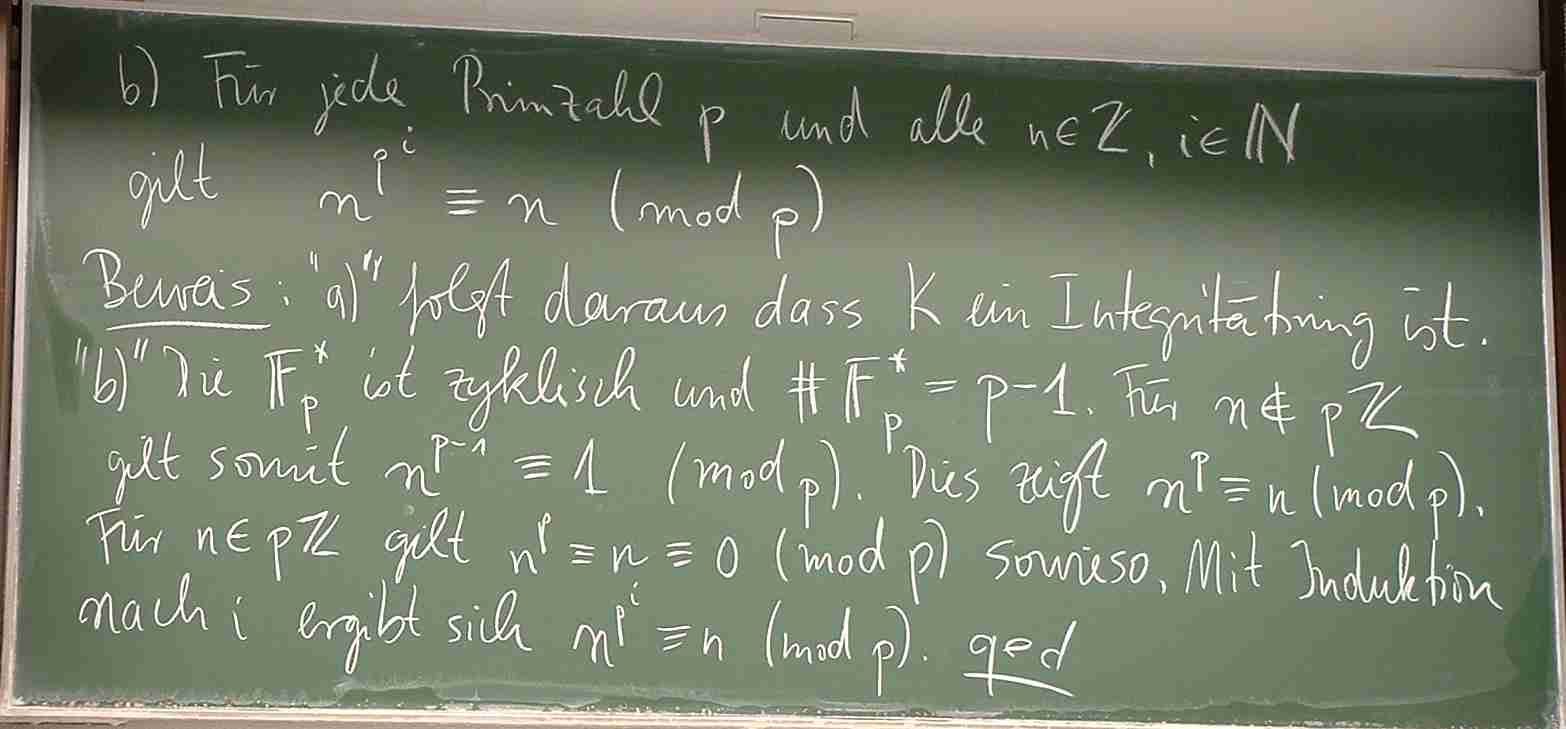 b) Für jede Primzahl p und alle n∈ℤ, i∈ℕ
gilt n^{p^i} ≡ n (mod p)
Beweis: "a)" folgt daraus dass K ein Integritätsring ist.
"b)" Die 𝔽_p^* ist zyklisch und #𝔽_p^* = p-1. Für n∉pℤ
gilt somit n^{p-1} ≡ 1 (mod p). Dies zeigt n^p ≡ n (mod p).
Für n∈pℤ gilt n^p ≡ n ≡ 0 (mod p) sowieso. Mit Induktion
nach i ergibt sich n^{p^i} ≡ n (mod p). qed